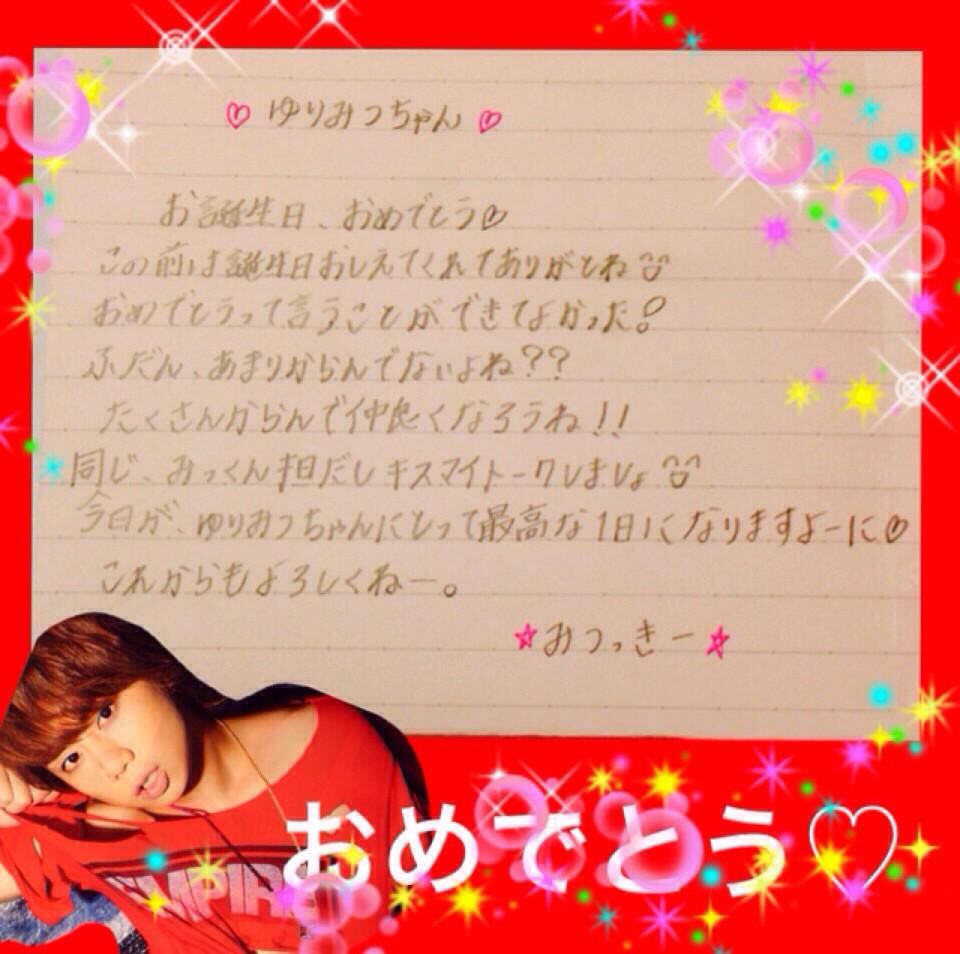 ♡ ゆりみつちゃん ♡
お誕生日、おめでとう♡
この前は誕生日おしえてくれてありがとね
おめでとうって言うことができてよかった!
ふだん、あまりからんでないよね??
たくさんからんで仲良くなろうね!!
同じ、みっくん担だしキスマイトークしましょ
今日が、ゆりみつちゃんにとって最高な1日になりますよーに♡
これからもよろしくねー。
☆みつっきー☆
EMPIRE
おめでとう♡